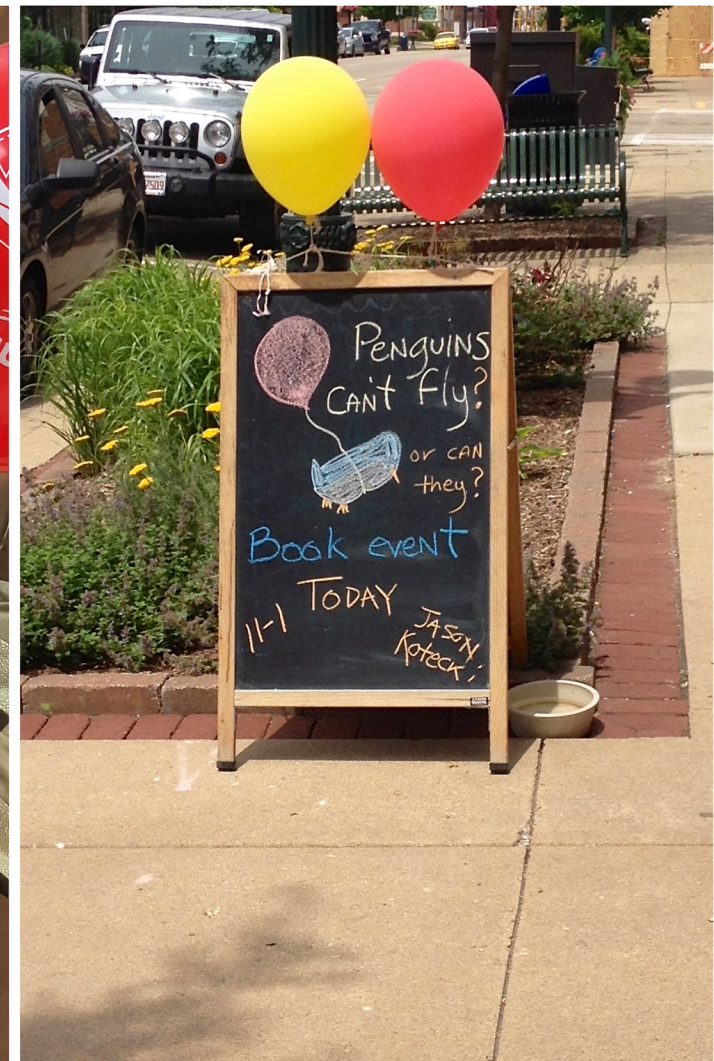 Penguins
can't fly?
or can
they?
Book event
Today
11-1
Jason
Koteck!